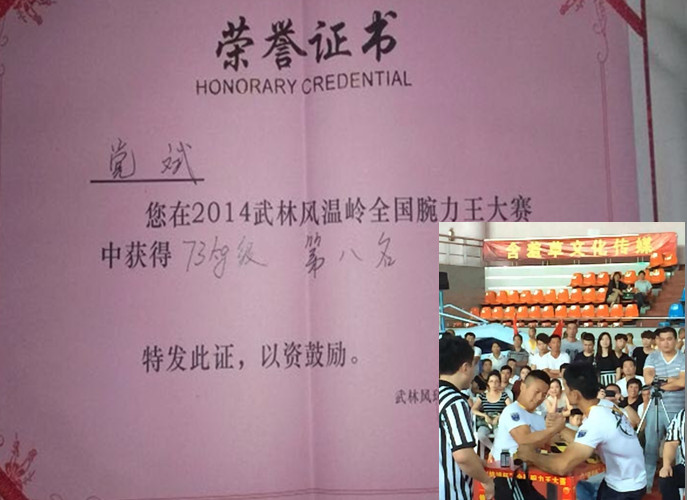 荣誉证书
HONORARY CREDENTIAL
党斌
您在2014武林风温岭全国腕力王大赛
中获得 73kg级 第八名
特发此证，以资鼓励。
武林风
含羞草文化传媒
腕力王大赛